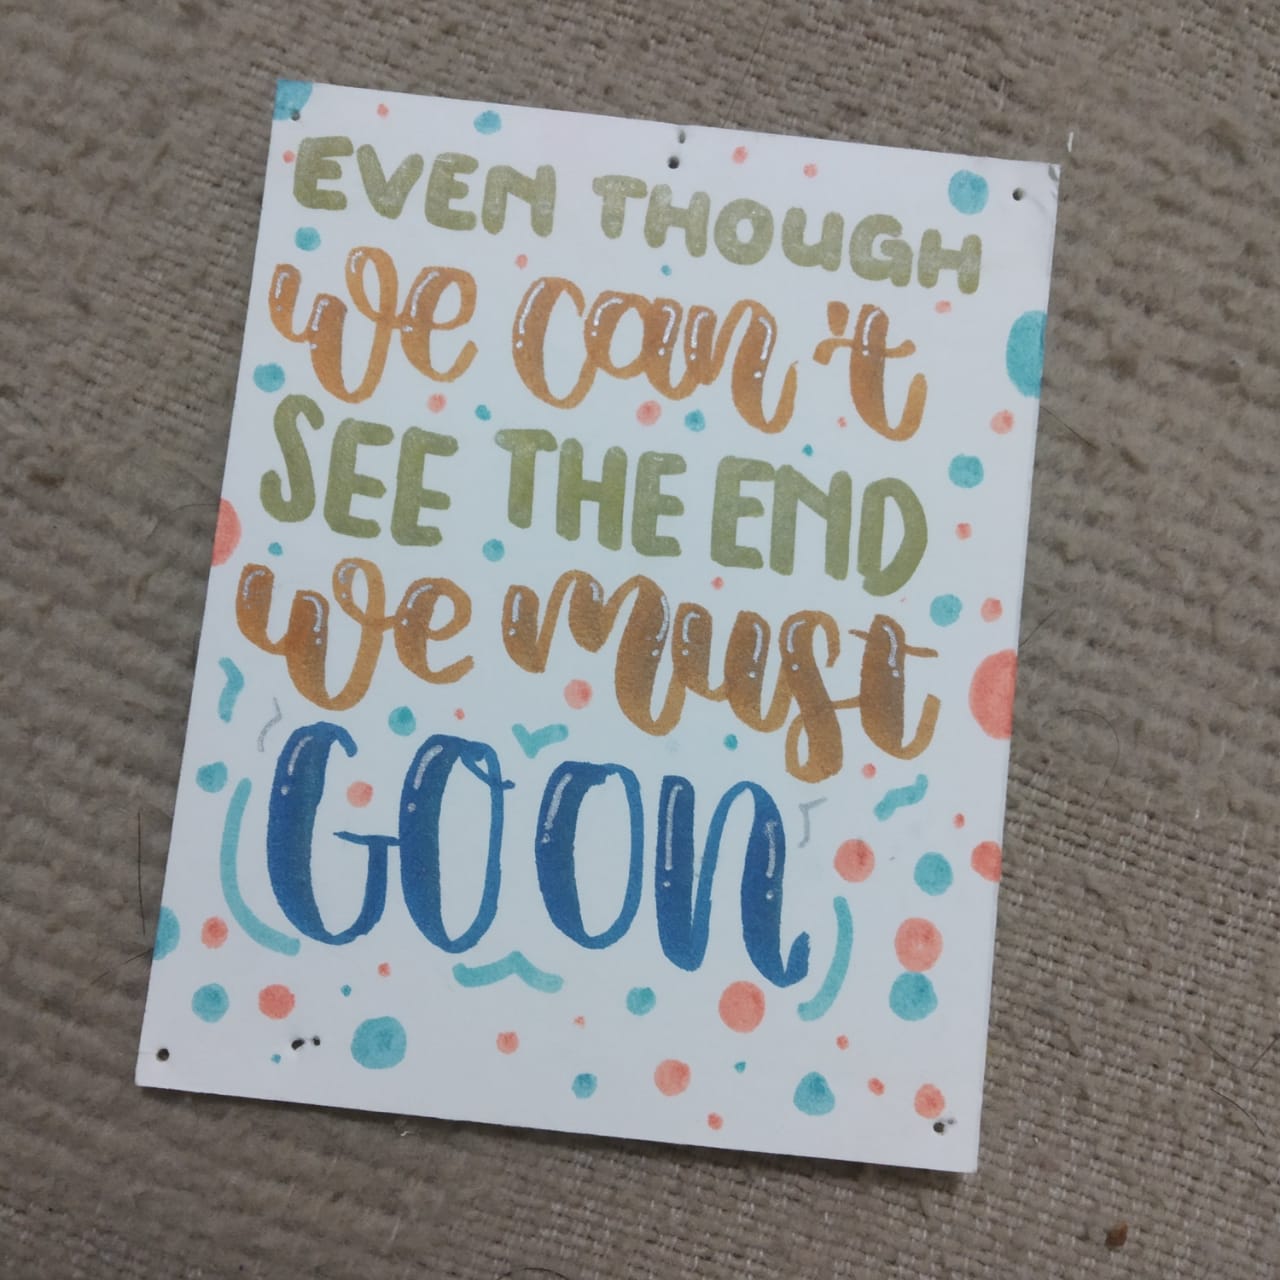 EVEN THOUGH
we can't
SEE THE END
we must
GO ON